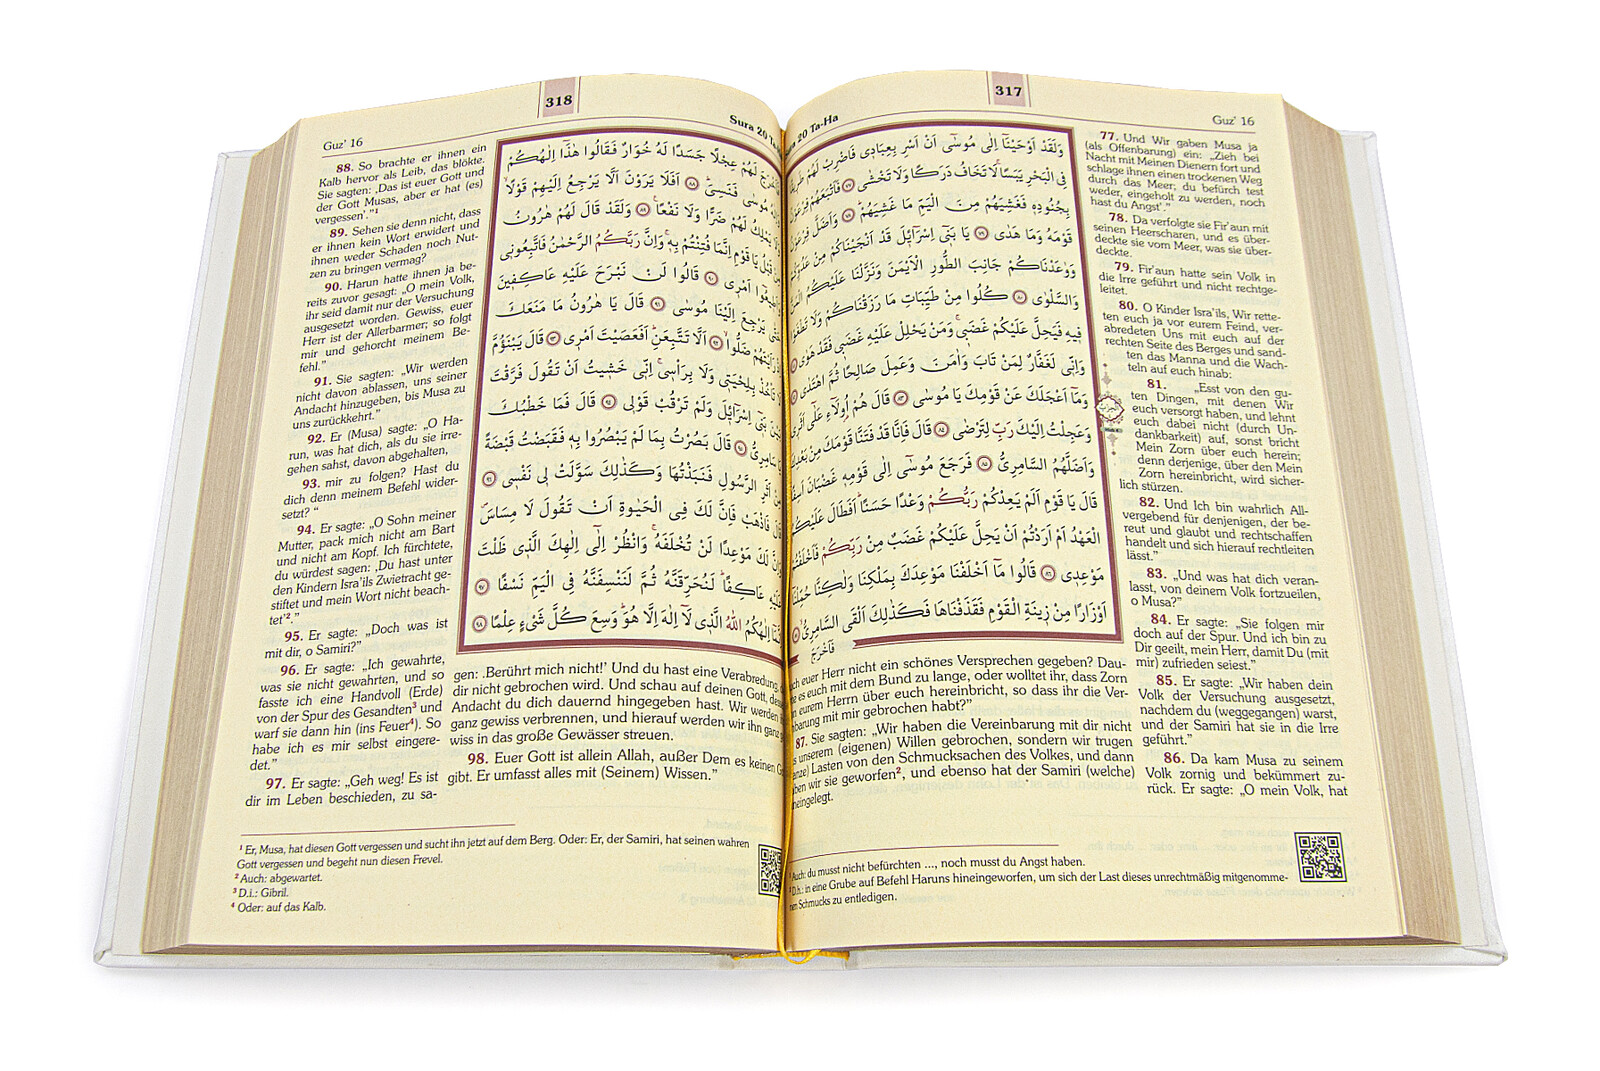 317
20 Ta-Ha
Guz' 16
وَلَقَدْ اَوْحَيْنَٓا اِلٰى مُوسٰٓى اَنْ اَسْرِ بِعِبَادٖى فَاضْرِبْ لَهُمْ
فِى الْبَحْرِ يَبَسًا لَا تَخَافُ دَرَكًا وَلَا تَخْشٰى ٧٧ فَاَتْبَعَهُمْ فِرْعَوْنُ
بِجُنُودِهٖ فَغَشِيَهُمْ مِنَ الْيَمِّ مَا غَشِيَهُمْ ٧٨ وَاَضَلَّ فِرْعَوْنُ
قَوْمَهُ وَمَا هَدٰى ٧٩ يَا بَنٖٓى اِسْرَٓائٖلَ قَدْ اَنْجَيْنَاكُمْ
وَوٰعَدْنَاكُمْ جَانِبَ الطُّورِ الْاَيْمَنَ وَنَزَّلْنَا عَلَيْكُمُ
وَالسَّلْوٰى ٨٠ كُلُوا مِنْ طَيِّبَاتِ مَا رَزَقْنَاكُمْ وَلَا
فٖيهِ فَيَحِلَّ عَلَيْكُمْ غَضَبٖى وَمَنْ يَحْلِلْ عَلَيْهِ غَضَبٖى فَقَدْ هَوٰى
وَاِنّٖى لَغَفَّارٌ لِمَنْ تَابَ وَاٰمَنَ وَعَمِلَ صَالِحًا ثُمَّ اهْتَدٰى
وَمَٓا اَعْجَلَكَ عَنْ قَوْمِكَ يَا مُوسٰى ٨٣ قَالَ هُمْ اُو۬لَٓاءِ عَلٰٓى اَثَرٖى
وَعَجِلْتُ اِلَيْكَ رَبِّ لِتَرْضٰى ٨٤ قَالَ فَاِنَّا قَدْ فَتَنَّا قَوْمَكَ مِنْ بَعْدِكَ
وَاَضَلَّهُمُ السَّامِرِىُّ ٨٥ فَرَجَعَ مُوسٰٓى اِلٰى قَوْمِهٖ غَضْبَانَ
قَالَ يَا قَوْمِ اَلَمْ يَعِدْكُمْ رَبُّكُمْ وَعْدًا حَسَنًا اَفَطَالَ عَلَيْكُمُ
الْعَهْدُ اَمْ اَرَدْتُمْ اَنْ يَحِلَّ عَلَيْكُمْ غَضَبٌ مِنْ رَبِّكُمْ
مَوْعِدٖى ٨٦ قَالُوا مَٓا اَخْلَفْنَا مَوْعِدَكَ بِمَلْكِنَا وَلٰكِنَّا حُمِّلْنَٓا
اَوْزَارًا مِنْ زٖينَةِ الْقَوْمِ فَقَذَفْنَاهَا فَكَذٰلِكَ اَلْقَى السَّامِرِىُّ
فَاَخْرَجَ
77. Und Wir gaben Musa ja
(als Offenbarung) ein: „Zieh bei
Nacht mit Meinen Dienern fort und
schlage ihnen einen trockenen Weg
durch das Meer; du befürch test
weder, eingeholt zu werden, noch
hast du Angst'.”
78. Da verfolgte sie Fir'aun mit
seinen Heerscharen, und es über-
deckte sie vom Meer, was sie über-
deckte.
79. Fir'aun hatte sein Volk in
die Irre geführt und nicht rechtge-
leitet.
80. O Kinder Isra'ils, Wir rette-
ten euch ja vor eurem Feind, ver-
abredeten Uns mit euch auf der
rechten Seite des Berges und sand-
ten das Manna und die Wach-
teln auf euch hinab:
81. „Esst von den gu-
ten Dingen, mit denen Wir
euch versorgt haben, und lehnt
euch dabei nicht (durch Un-
dankbarkeit) auf, sonst bricht
Mein Zorn über euch herein;
denn derjenige, über den Mein
Zorn hereinbricht, wird sicher-
lich stürzen.
82. Und Ich bin wahrlich All-
vergebend für denjenigen, der be-
reut und glaubt und rechtschaffen
handelt und sich hierauf rechtleiten
lässt.”
83. „Und was hat dich veran-
lasst, von deinem Volk fortzueilen,
o Musa?”
84. Er sagte: „Sie folgen mir
doch auf der Spur. Und ich bin zu
Dir geeilt, mein Herr, damit Du (mit
mir) zufrieden seiest.”
85. Er sagte: „Wir haben dein
Volk der Versuchung ausgesetzt,
nachdem du (weggegangen) warst,
und der Samiri hat sie in die Irre
geführt.”
86. Da kam Musa zu seinem
Volk zornig und bekümmert zu-
rück. Er sagte: „O mein Volk, hat
euer Herr nicht ein schönes Versprechen gegeben? Dau-
es euch mit dem Bund zu lange, oder wolltet ihr, dass Zorn
eurem Herrn über euch hereinbricht, so dass ihr die Ver-
mit mir gebrochen habt?”
87. Sie sagten: „Wir haben die Vereinbarung mit dir nicht
unserem (eigenen) Willen gebrochen, sondern wir trugen
Lasten von den Schmucksachen des Volkes, und dann
wir sie geworfen², und ebenso hat der Samiri (welche)
hineingelegt.
Auch: du musst nicht befürchten ..., noch musst du Angst haben.
D.h.: in eine Grube auf Befehl Haruns hineingeworfen, um sich der Last dieses unrechtmäßig mitgenomme-
nen Schmucks zu entledigen.
318
Guz' 16
Sura 20
لَهُمْ عِجْلًا جَسَدًا لَهُ خُوَارٌ فَقَالُوا هٰذَٓا اِلٰهُكُمْ
مُوسٰى فَنَسِىَ ٨٨ اَفَلَا يَرَوْنَ اَلَّا يَرْجِعُ اِلَيْهِمْ قَوْلًا
يَمْلِكُ لَهُمْ ضَرًّا وَلَا نَفْعًا ٨٩ وَلَقَدْ قَالَ لَهُمْ هٰرُونُ
قَبْلُ يَا قَوْمِ اِنَّمَا فُتِنْتُمْ بِهٖ وَاِنَّ رَبَّكُمُ الرَّحْمٰنُ فَاتَّبِعُونٖى
اَمْرٖى ٩٠ قَالُوا لَنْ نَبْرَحَ عَلَيْهِ عَاكِفٖينَ
يَرْجِعَ اِلَيْنَا مُوسٰى ٩١ قَالَ يَا هٰرُونُ مَا مَنَعَكَ
رَاَيْتَهُمْ ضَلُّوا ٩٢ اَلَّا تَتَّبِعَنِ اَفَعَصَيْتَ اَمْرٖى ٩٣ قَالَ يَبْنَؤُمَّ
تَأْخُذْ بِلِحْيَتٖى وَلَا بِرَأْسٖى اِنّٖى خَشٖيتُ اَنْ تَقُولَ فَرَّقْتَ
بَنٖٓى اِسْرَٓائٖلَ وَلَمْ تَرْقُبْ قَوْلٖى ٩٤ قَالَ فَمَا خَطْبُكَ
سَامِرِىُّ ٩٥ قَالَ بَصُرْتُ بِمَا لَمْ يَبْصُرُوا بِهٖ فَقَبَضْتُ قَبْضَةً
اَثَرِ الرَّسُولِ فَنَبَذْتُهَا وَكَذٰلِكَ سَوَّلَتْ لٖى نَفْسٖى ٩٦
فَاذْهَبْ فَاِنَّ لَكَ فِى الْحَيٰوةِ اَنْ تَقُولَ لَا مِسَاسَ
لَكَ مَوْعِدًا لَنْ تُخْلَفَهُ وَانْظُرْ اِلٰٓى اِلٰهِكَ الَّذٖى ظَلْتَ
عَلَيْهِ عَاكِفًا لَنُحَرِّقَنَّهُ ثُمَّ لَنَنْسِفَنَّهُ فِى الْيَمِّ نَسْفًا ٩٧
اِلٰهُكُمُ اللّٰهُ الَّذٖى لَٓا اِلٰهَ اِلَّا هُوَ وَسِعَ كُلَّ شَىْءٍ عِلْمًا ٩٨
88. So brachte er ihnen ein
Kalb hervor als Leib, das blökte.
Sie sagten: ,Das ist euer Gott und
der Gott Musas, aber er hat (es)
vergessen'.”¹
89. Sehen sie denn nicht, dass
er ihnen kein Wort erwidert und
ihnen weder Schaden noch Nut-
zen zu bringen vermag?
90. Harun hatte ihnen ja be-
reits zuvor gesagt: „O mein Volk,
ihr seid damit nur der Versuchung
ausgesetzt worden. Gewiss, euer
Herr ist der Allerbarmer; so folgt
mir und gehorcht meinem Be-
fehl.”
91. Sie sagten: „Wir werden
nicht davon ablassen, uns seiner
Andacht hinzugeben, bis Musa zu
uns zurückkehrt.”
92. Er (Musa) sagte: „O Ha-
run, was hat dich, als du sie irre-
gehen sahst, davon abgehalten,
93. mir zu folgen? Hast du
dich denn meinem Befehl wider-
setzt? “
94. Er sagte: „O Sohn meiner
Mutter, pack mich nicht am Bart
und nicht am Kopf. Ich fürchtete,
du würdest sagen: ,Du hast unter
den Kindern Isra'ils Zwietracht ge-
stiftet und mein Wort nicht beach-
tet'².”
95. Er sagte: „Doch was ist
mit dir, o Samiri?”
96. Er sagte: „Ich gewahrte,
was sie nicht gewahrten, und so
fasste ich eine Handvoll (Erde)
von der Spur des Gesandten³ und
warf sie dann hin (ins Feuer⁴). So
habe ich es mir selbst eingere-
det.”
97. Er sagte: „Geh weg! Es ist
dir im Leben beschieden, zu sa-
gen: .Berührt mich nicht!' Und du hast eine Verabredung,
dir nicht gebrochen wird. Und schau auf deinen Gott,
Andacht du dich dauernd hingegeben hast. Wir werden
ganz gewiss verbrennen, und hierauf werden wir ihn ganz
wiss in das große Gewässer streuen.
98. Euer Gott ist allein Allah, außer Dem es keinen
gibt. Er umfasst alles mit (Seinem) Wissen.”
¹ Er, Musa, hat diesen Gott vergessen und sucht ihn jetzt auf dem Berg. Oder: Er, der Samiri, hat seinen wahren
Gott vergessen und begeht nun diesen Frevel.
² Auch: abgewartet.
³ D.i.: Gibril.
⁴ Oder: auf das Kalb.